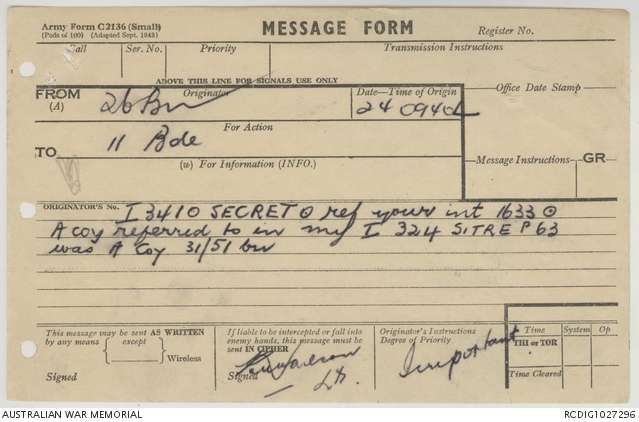 Army Form C2136 (Small)
(Pads of 100) (Adapted Sept. 1943)
MESSAGE FORM
Register No.
Call Ser. No. Priority Transmission Instructions
ABOVE THIS LINE FOR SIGNALS USE ONLY
FROM (A) Originator Date—Time of Origin Office Date Stamp
26 Bn 24 0940L
For Action
TO 11 Bde
(w) For Information (INFO.) Message Instructions GR
ORIGINATOR'S No.
I 3410 SECRET O ref your int 1633 O
A coy referred to in my I 324 SITREP 63
was A Coy 31/51 bn
This message may be sent AS WRITTEN
by any means { except }
Wireless
Signed
If liable to be intercepted or fall into
enemy hands, this message must be
sent IN CIPHER
Signed
Lt.
Originator's Instructions
Degree of Priority
Important
Time System Op
THI or TOR
Time Cleared
AUSTRALIAN WAR MEMORIAL RCDIG1027296